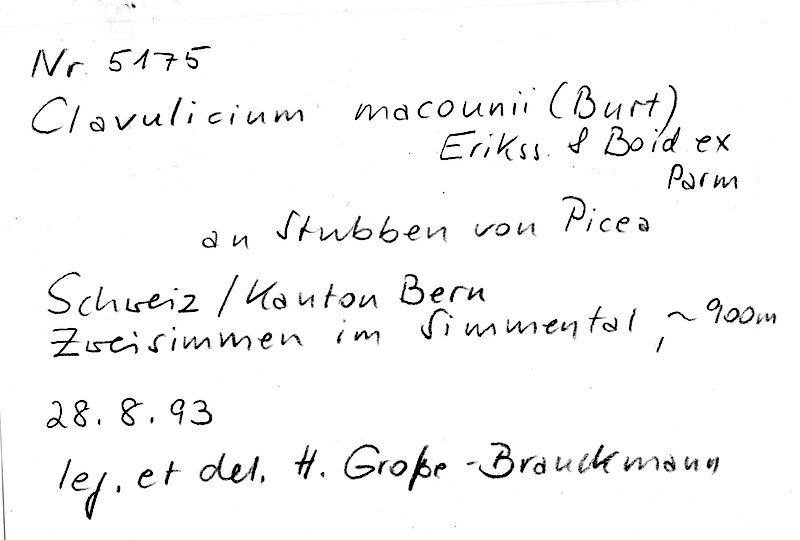 Nr. 5175
Clavulicium macounii (Burt)
Erikss. & Boid ex
Parm
an Stubben von Picea
Schweiz / Kanton Bern
Zweisimmen im Simmental, ~ 900m
28. 8. 93
leg. et det. H. Große-Brauckmann